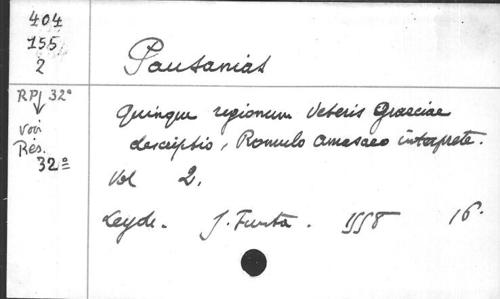 404
155
2
Pausanias
RP 32°
Voir
Rés.
32°
Quinque regionum Veteris Graeciae
descriptio, Romulo Amasaeo interprete.
Vol 2.
Leyde. J. Frusta. 1558 16.